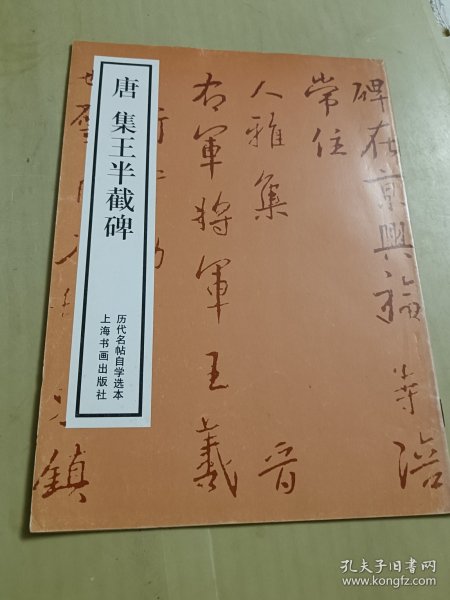 唐 集王半截碑
历代名帖自学选本
上海书画出版社
碑在京興福寺陪
常住
人雅集 晋
右军将軍王羲
鎮
孔夫子旧书网
www.kongfz.com